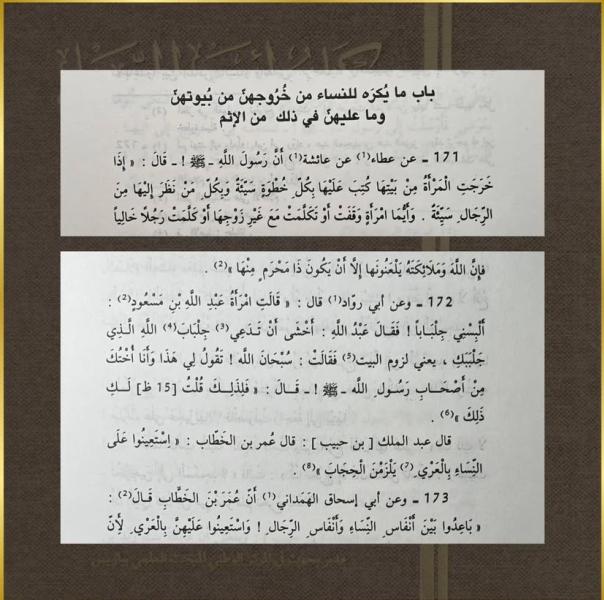 باب ما يُكرَه للنساء من خُرُوجهنّ من بيُوتهنّ
وما عليهنّ في ذلك من الإثم
171 ـ عن عطاء(1) عن عائشة(1) أَنَّ رَسُولَ اللَّهِ ـ ﷺ ! ـ قَالَ : « إِذَا
خَرَجَتِ الْمَرْأَةُ مِنْ بَيْتِهَا كُتِبَ عَلَيْهَا بِكُلِّ خُطْوَةٍ سَيِّئَةٌ وَبِكُلِّ مَنْ نَظَرَ إِلَيْهَا مِنَ
الرِّجَالِ سَيِّئَةٌ . وَأَيُّمَا امْرَأَةٍ وَقَفَتْ أَوْ تَكَلَّمَتْ مَعَ غَيْرِ زَوْجِهَا أَوْ كَلَّمَتْ رَجُلًا خَالِياً
فَإِنَّ اللَّهَ وَمَلَائِكَتَهُ يَلْعَنُونَها إِلاَّ أَنْ يَكُونَ ذَا مَحْرَمٍ مِنْهَا »(2) .
172 ـ وعن أبي روّاد(1) قال : « قَالَتِ امْرَأَةُ عَبْدِ اللَّهِ بْنِ مَسْعُودٍ(2) :
أَلْبِسْنِي جِلْبَاباً ! فَقَالَ عَبْدُ اللَّهِ : أَخْشَى أَنْ تَدَعِي(3) جِلْبَابَ(4) اللَّهِ الَّذِي
جَلْبَبَكِ ، يعني لزوم البيت(5) فَقَالَتْ : سُبْحَانَ اللَّه ! تَقُولُ لِي هَذَا وَأَنَا أُخْتُكَ
مِنْ أَصْحَابِ رَسُولِ اللَّه ـ ﷺ ! ـ قَالَ : « فَلِذَلِكَ قُلْتُ [15 ظ] لَكِ
ذَلِكَ »(6) .
قال عبد الملك [ بن حبيب ] : قال عُمر بن الخطّاب : « اِسْتَعِينُوا عَلَى
النِّسَاءِ بِالْعَرْيِ(7) يَلْزَمْنَ الْحِجَابَ »(8) .
173 ـ وعن أبي إسحاق الهَمداني(1) أَنَّ عُمَرَ بْنَ الْخَطَّابِ قَالَ(2) :
« بَاعِدُوا بَيْنَ أَنْفَاسِ النِّسَاءِ وَأَنْفَاسِ الرِّجَالِ ! وَاسْتَعِينُوا عَلَيْهِنَّ بِالْعَرْيِ لِأَنَّ